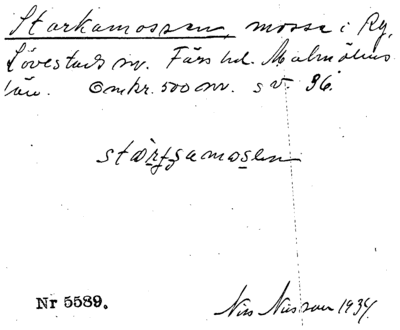 Starkamossen, mosse i Ry,
Lövestads sn. Färs hd. Malmöhus
län. Omkr. 500 m. s v. 36.
Nr 5589. Nils Nilsson 1934.